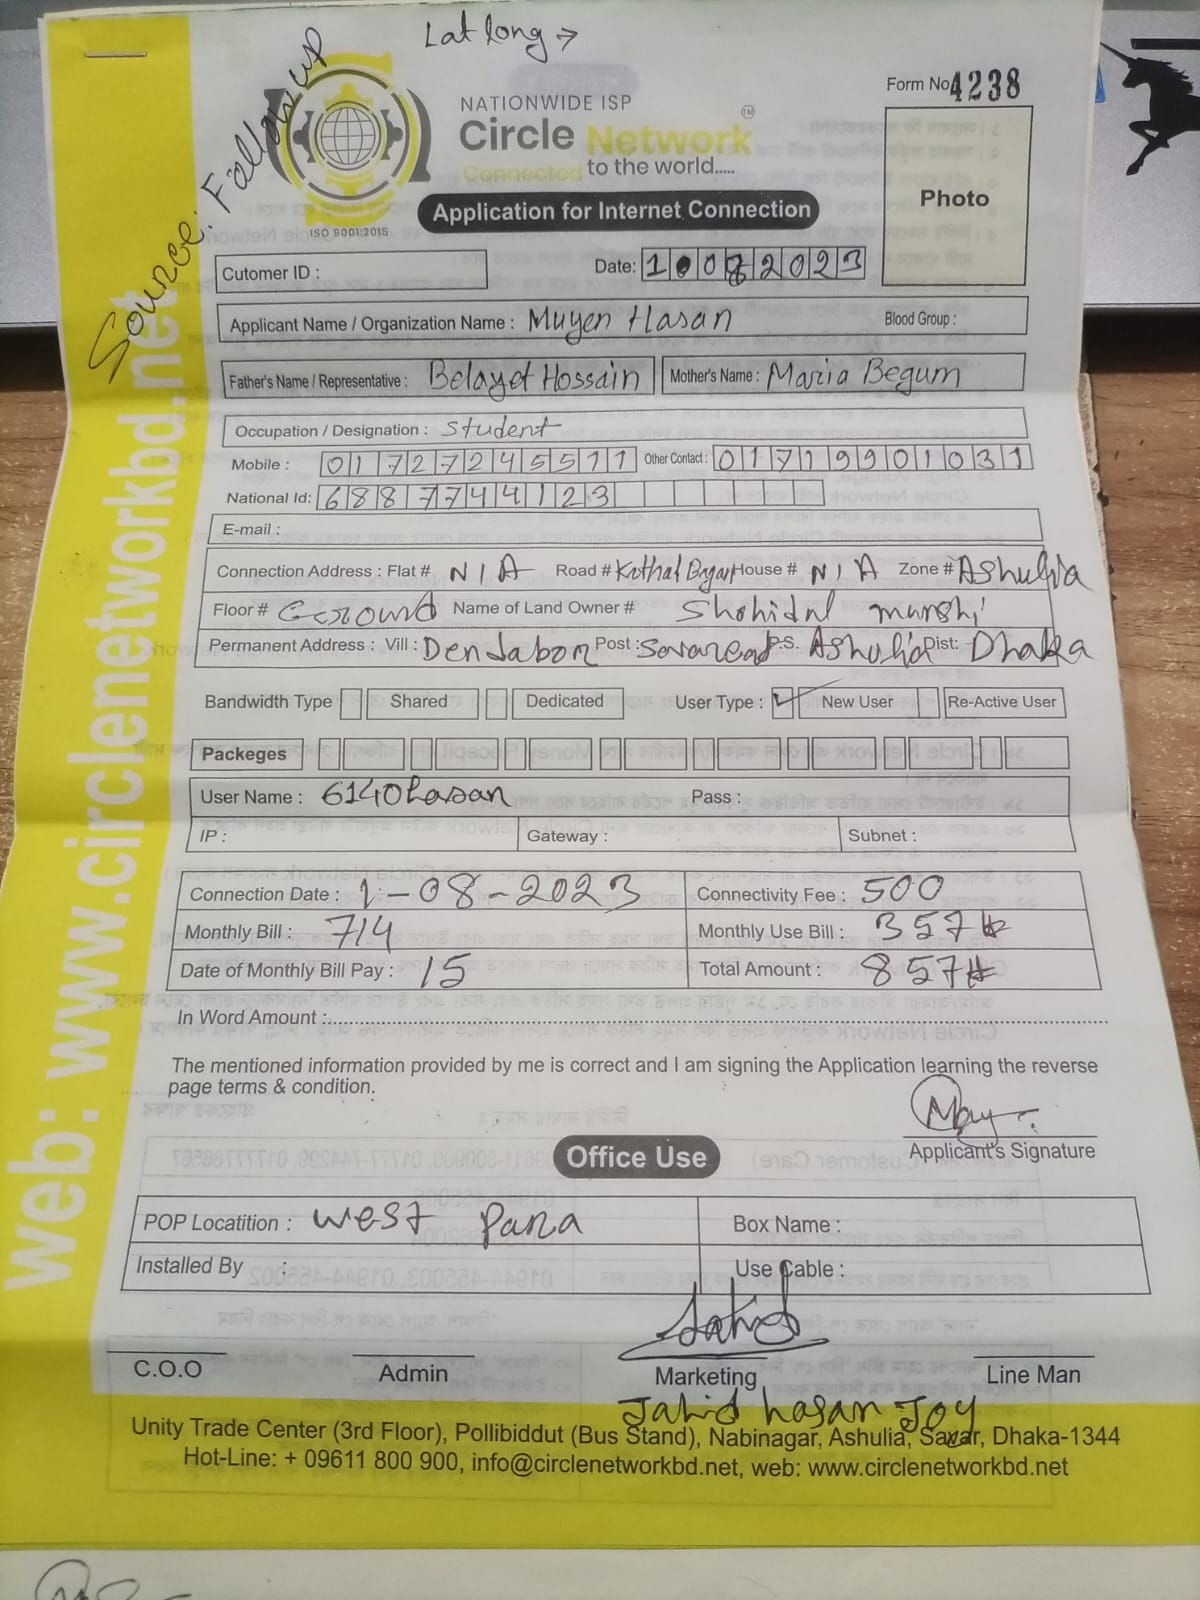 Lat long →
Source: Followup
Form No 4238
NATIONWIDE ISP
Circle Network
TM
Connected to the world.....
ISO 9001:2015
Photo
Application for Internet Connection
Cutomer ID :
Date: 1 0 0 8 2 0 2 3
Applicant Name / Organization Name : Muyen Hasan Blood Group :
Father's Name / Representative : Belayet Hossain Mother's Name : Maria Begum
Occupation / Designation : Student
Mobile : 01727245511 Other Contact : 01719901031
National Id: 6887744123
E-mail :
Connection Address : Flat # N/A Road # Kathal Bagan House # N/A Zone # Ashulia
Floor # Ground Name of Land Owner # Shohidul munshi
Permanent Address : Vill : Dendabor Post : P.S. Ashulia Dist: Dhaka
Bandwidth Type Shared Dedicated User Type : ✓ New User Re-Active User
Packeges
User Name : 6140hasan Pass :
IP : Gateway : Subnet :
Connection Date : 1-08-2023 Connectivity Fee : 500
Monthly Bill : 714 Monthly Use Bill : 357
Date of Monthly Bill Pay : 15 Total Amount : 857
In Word Amount :
The mentioned information provided by me is correct and I am signing the Application learning the reverse
page terms & condition.
Applicant's Signature
Office Use
POP Locatition : West Para Box Name :
Installed By : Use Cable :
Jahid
C.O.O Admin Marketing Line Man
Jahid hasan Joy
Unity Trade Center (3rd Floor), Pollibiddut (Bus Stand), Nabinagar, Ashulia, Savar, Dhaka-1344
Hot-Line: + 09611 800 900, info@circlenetworkbd.net, web: www.circlenetworkbd.net
web: www.circlenetworkbd.net